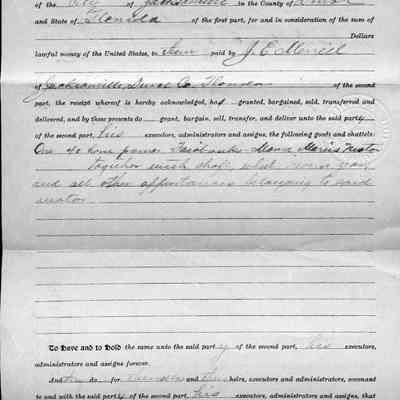 of the City of Jacksonville in the County of Duval
and State of Florida of the first part, for and in consideration of the sum of
Dollars
lawful money of the United States, to paid by J. E. Merrill
of Jacksonville, Duval Co. Florida of the second
part, the receipt whereof is hereby acknowledged, has granted, bargained, sold, transferred and
delivered, and by these presents do grant, bargain, sell, transfer, and deliver unto the said party
of the second part, his executors, administrators and assigns, the following goods and chattels:
One 40 horse power Fairbanks Morse Motor
together with shaft, wheel
and all other appurtenances belonging to said
motor
To Have and to Hold the same unto the said party of the second part, his executors,
administrators and assigns forever.
And do for and heirs, executors and administrators, covenant
to and with the said party of the second part, his executors, administrators and assigns, that